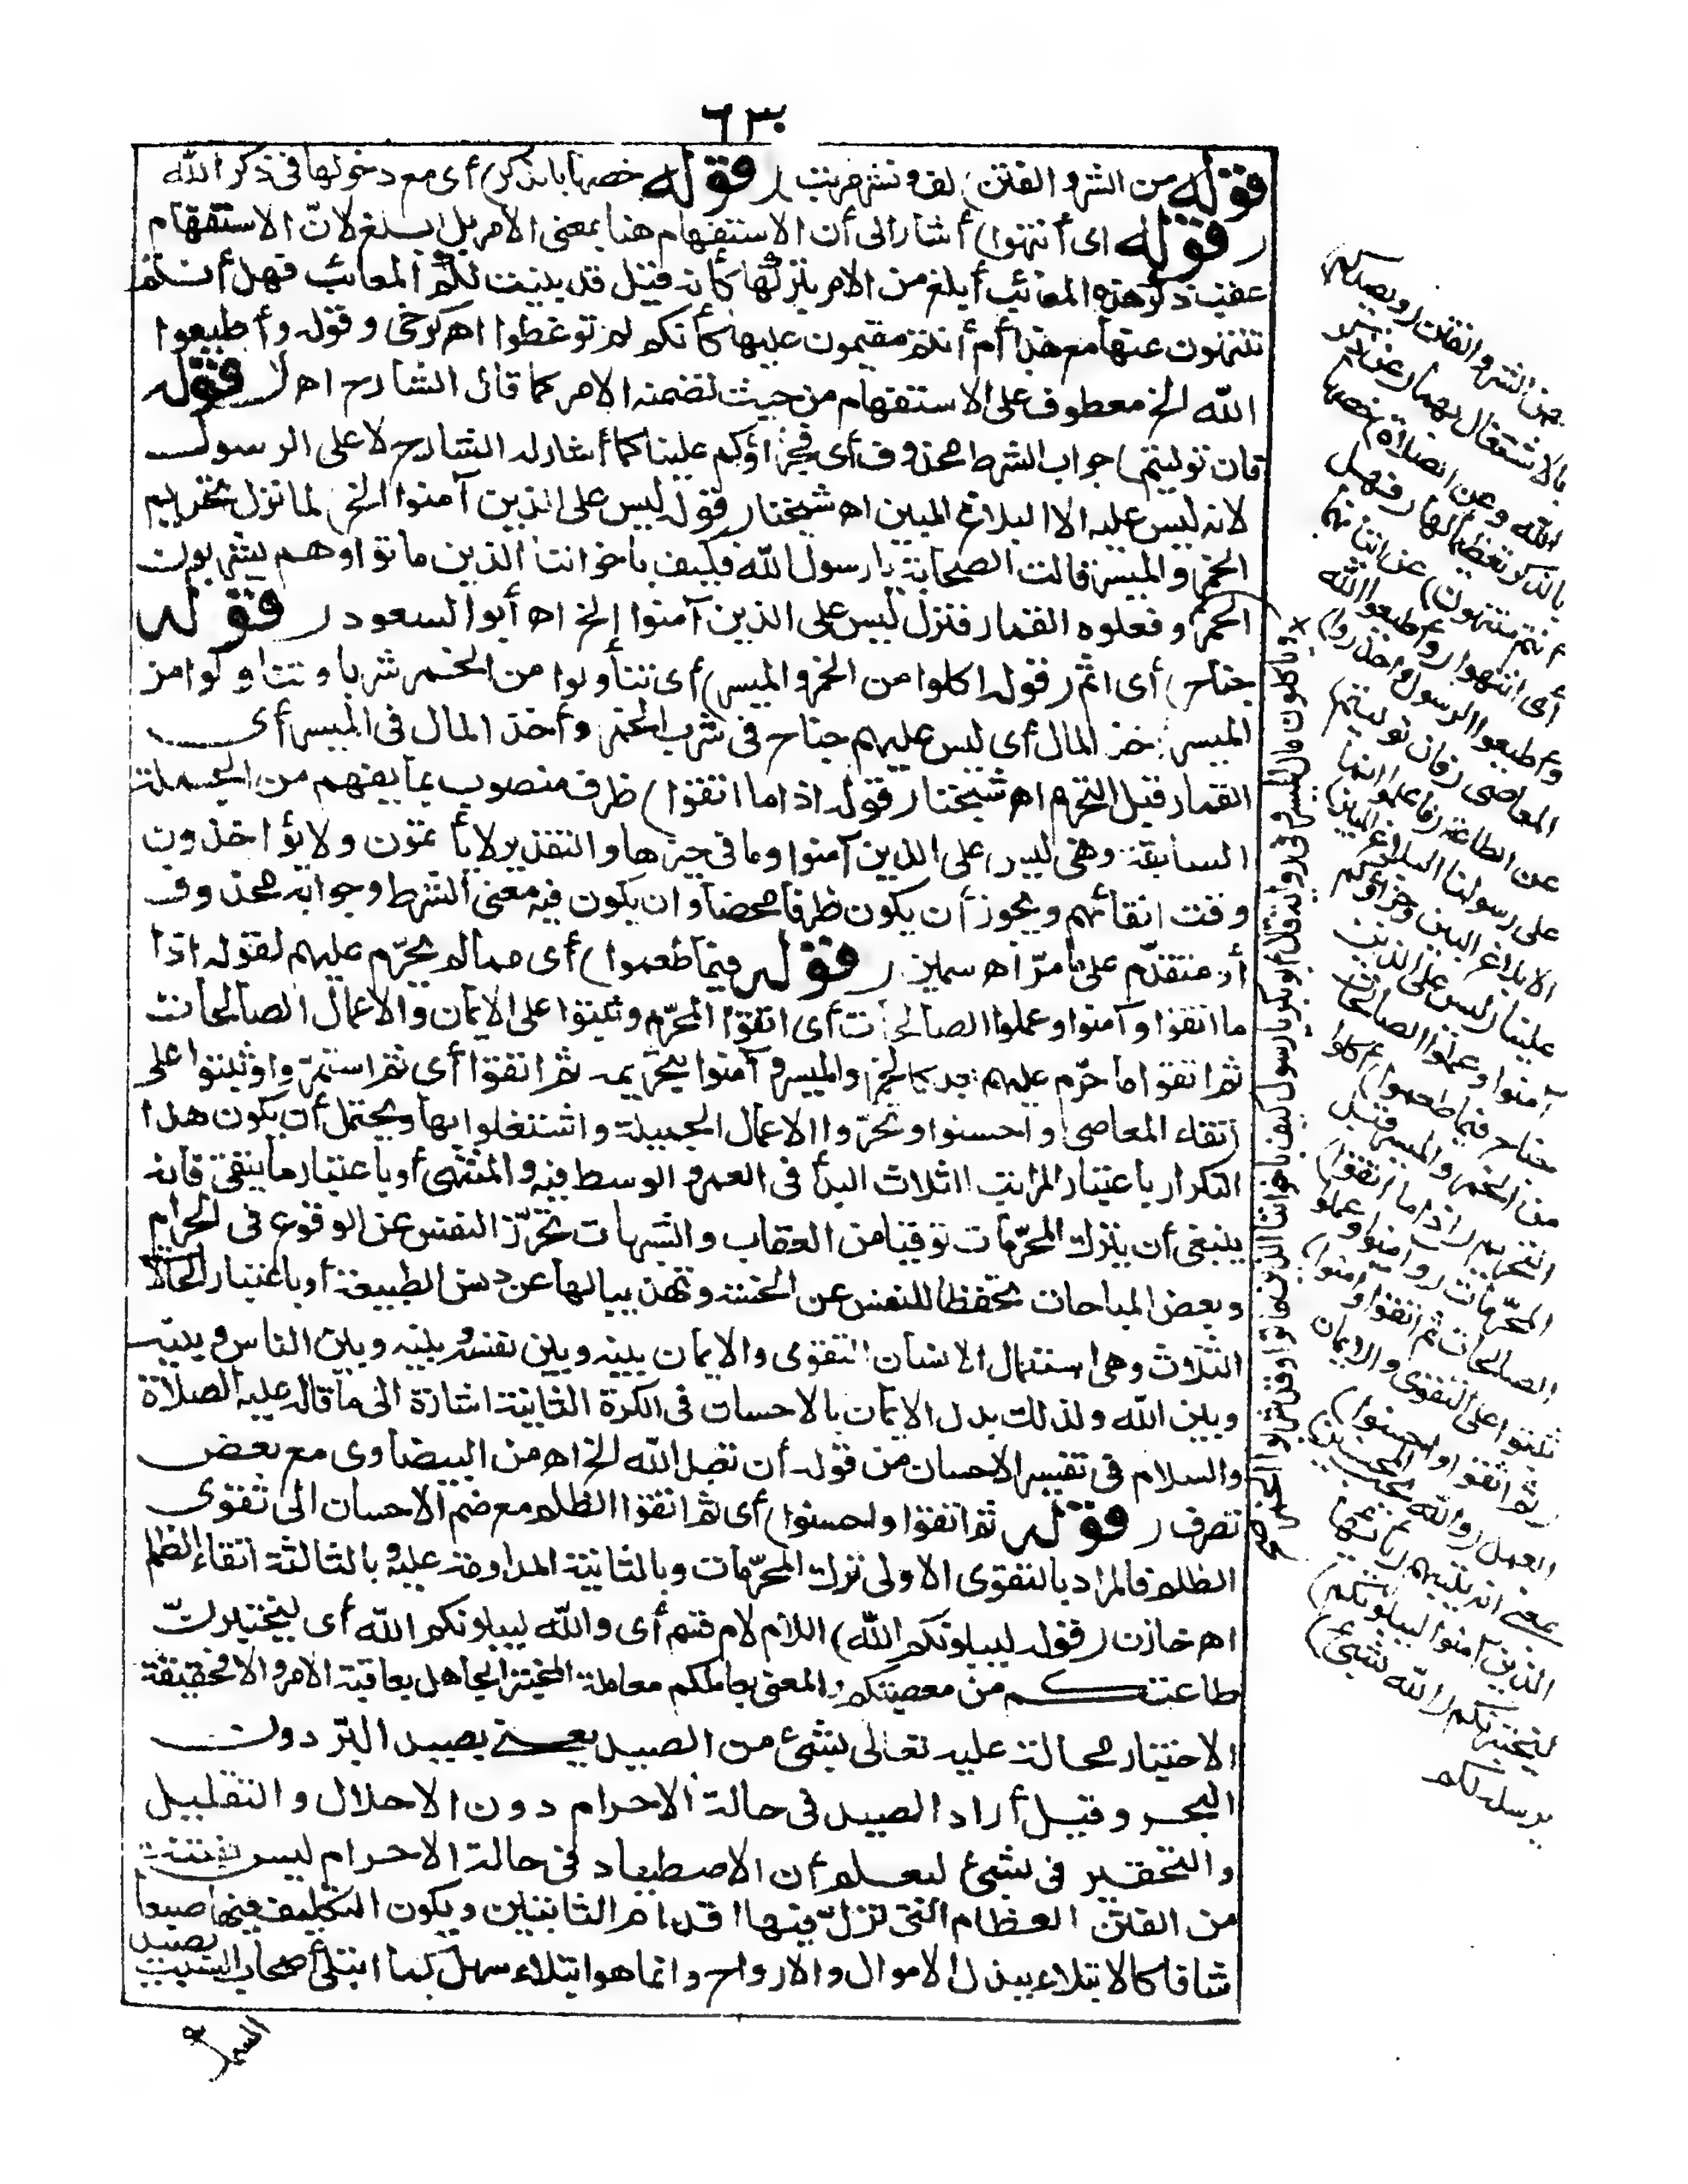 ٦٣٠
قوله من الشر والفتن) لف ونشر مرتب (قوله خصها بالذكر) أى مع دخولها فى ذكر الله
(قوله اى أنتهوا) أشار الى أن الاستفهام هنا بمعنى الامر بل ابلغ لانّ الاستفهام
عقب ذكر هذه المعائب أبلغ من الامر بتركها كأنه قيل قد بينت لكم المعائب فهل أنتم
تنتهون عنها مع هذا أم أنتم مقيمون عليها كأنكم لم توعظوا اهـ كرخى وقوله وأطيعوا
الله الخ معطوف على الاستفهام من حيث تضمنه الامر كما قال الشارح اهـ (قوله
فان توليتم) جواب الشرط محذوف أى فجزاؤكم علينا كما أشار له الشارح لا على الرسول
لانه ليس عليه الا البلاغ المبين اهـ شيخنا (قوله ليس على الذين آمنوا الخ) لما نزل تحريم
الخمر والميسر قالت الصحابة يا رسول الله فكيف باخواننا الذين ماتوا وهم يشربون
الخمر وفعلوه القمار فنزل ليس على الذين آمنوا إلخ اهـ أبو السعود (قوله
جناح) أى اثم (قوله اكلوا من الخمر والميسر) أى تناولوا من الخمر شربا وتناولوا من
الميسر أخذ المال أى ليس عليهم جناح فى شرب الخمر وأخذ المال فى الميسر أى
القمار قبل التحريم اهـ شيخنا (قوله اذا ما اتقوا) ظرف منصوب بما يفهم من الجملة
السابقة وهى ليس على الذين آمنوا وما فى حيزها والتقدير لا يأثمون ولا يؤاخذون
وقت اتقائهم ويجوز أن يكون ظرفا محضا وان يكون فيه معنى الشرط وجوابه محذوف
أو متقدّم على ما مرّ اهـ سمين (قوله فيما طعموا) أى مما لم يحرّم عليهم لقوله اذا
ما اتقوا وآمنوا وعملوا الصالحات أى اتقوا المحرّم وثبتوا على الايمان والاعمال الصالحات
ثم اتقوا ما حرّم عليهم بعد كالخمر والميسر وآمنوا بتحريمه ثم اتقوا أى ثم استمرّوا وثبتوا على
اتقاء المعاصى وأحسنوا وتحرّوا الاعمال الجميلة واشتغلوا بها ويحتمل أن يكون هذا
التكرار باعتبار المراتب الثلاث البدأ فى العمر والوسط فيه والمنتهى أو باعتبار ما يتقى فانه
ينبغى أن يترك المحرّمات توقيا من العقاب والشبهات تحرّزا للنفس عن الوقوع فى الحرام
وبعض المباحات تحفظا للنفس عن الخسة وتهذيبا لها عن دنس الطبيعة أو باعتبار الحالات
الثلاث وهى استعمال الانسان التقوى والايمان بينه وبين نفسه وبينه وبين الناس وبينه
وبين الله ولذلك بدل الايمان بالاحسان فى الكرة الثانية اشارة الى ما قاله عليه الصلاة
والسلام فى تفسير الاحسان من قوله أن تعبد الله الخ اهـ من البيضاوى مع بعض
تصرف (قوله ثم اتقوا وأحسنوا) أى ثم اتقوا الظلم مع ضم الاحسان الى تقوى
الظلم فالمراد بالتقوى الاولى ترك المحرّمات وبالثانية المداومة عليه وبالثالثة اتقاء الظلم
اهـ خازن (قوله ليبلونكم الله) اللام لام قسم أى والله ليبلونكم الله أى ليختبرنّ
طاعتكم من معصيتكم والمعنى يعاملكم معاملة المختبر الجاهل بعاقبة الامر والا فحقيقة
الاختبار محالة عليه تعالى بشئ من الصيد يعنى بصيد البرّ دون
البحر وقيل أراد الصيد فى حالة الاحرام دون الاحلال والتقليل
والتحقير فى بشئ ليعلم أن الاصطياد فى حالة الاحرام ليس بفتنة
من الفتن العظام التى تزلّ فيها اقدام الثابتين ويكون التكليف فيها صعبا
شاقا كالابتلاء ببذل الاموال والارواح وانما هو ابتلاء سهل كما ابتلى أصحاب السبت بصيد
السمك
من الشر والفتن (ويصدكم
بالاشتغال بهما (عن ذكر
الله وعن الصلاة) خصها
بالذكر تعظيما لها (فهل
أنتم منتهون) عن اتيانهما
أى انتهوا (وأطيعوا الله
وأطيعوا الرسول واحذروا)
المعاصى (فان توليتم)
عن الطاعة (فاعلموا انما
على رسولنا البلاغ المبين)
الابلاغ البين وجزاؤكم
علينا (ليس على الذين
آمنوا وعملوا الصالحات
جناح فيما طعموا) أكلوا
من الخمر والميسر قبل
التحريم (اذا ما اتقوا)
المحرّمات (وآمنوا وعملوا
الصالحات ثم اتقوا وآمنوا)
ثبتوا على التقوى والايمان
(ثم اتقوا وأحسنوا)
العمل (والله يحب المحسنين)
بمعنى انه يثيبهم (يا أيها
الذين آمنوا ليبلونكم)
ليختبرنكم (الله بشئ)
يرسله لكم
× ويأكلون مال الميسر وفى رواية قال أبو بكر يا رسول كيف باخواننا الذين ماتوا وقد شربوا الخمر